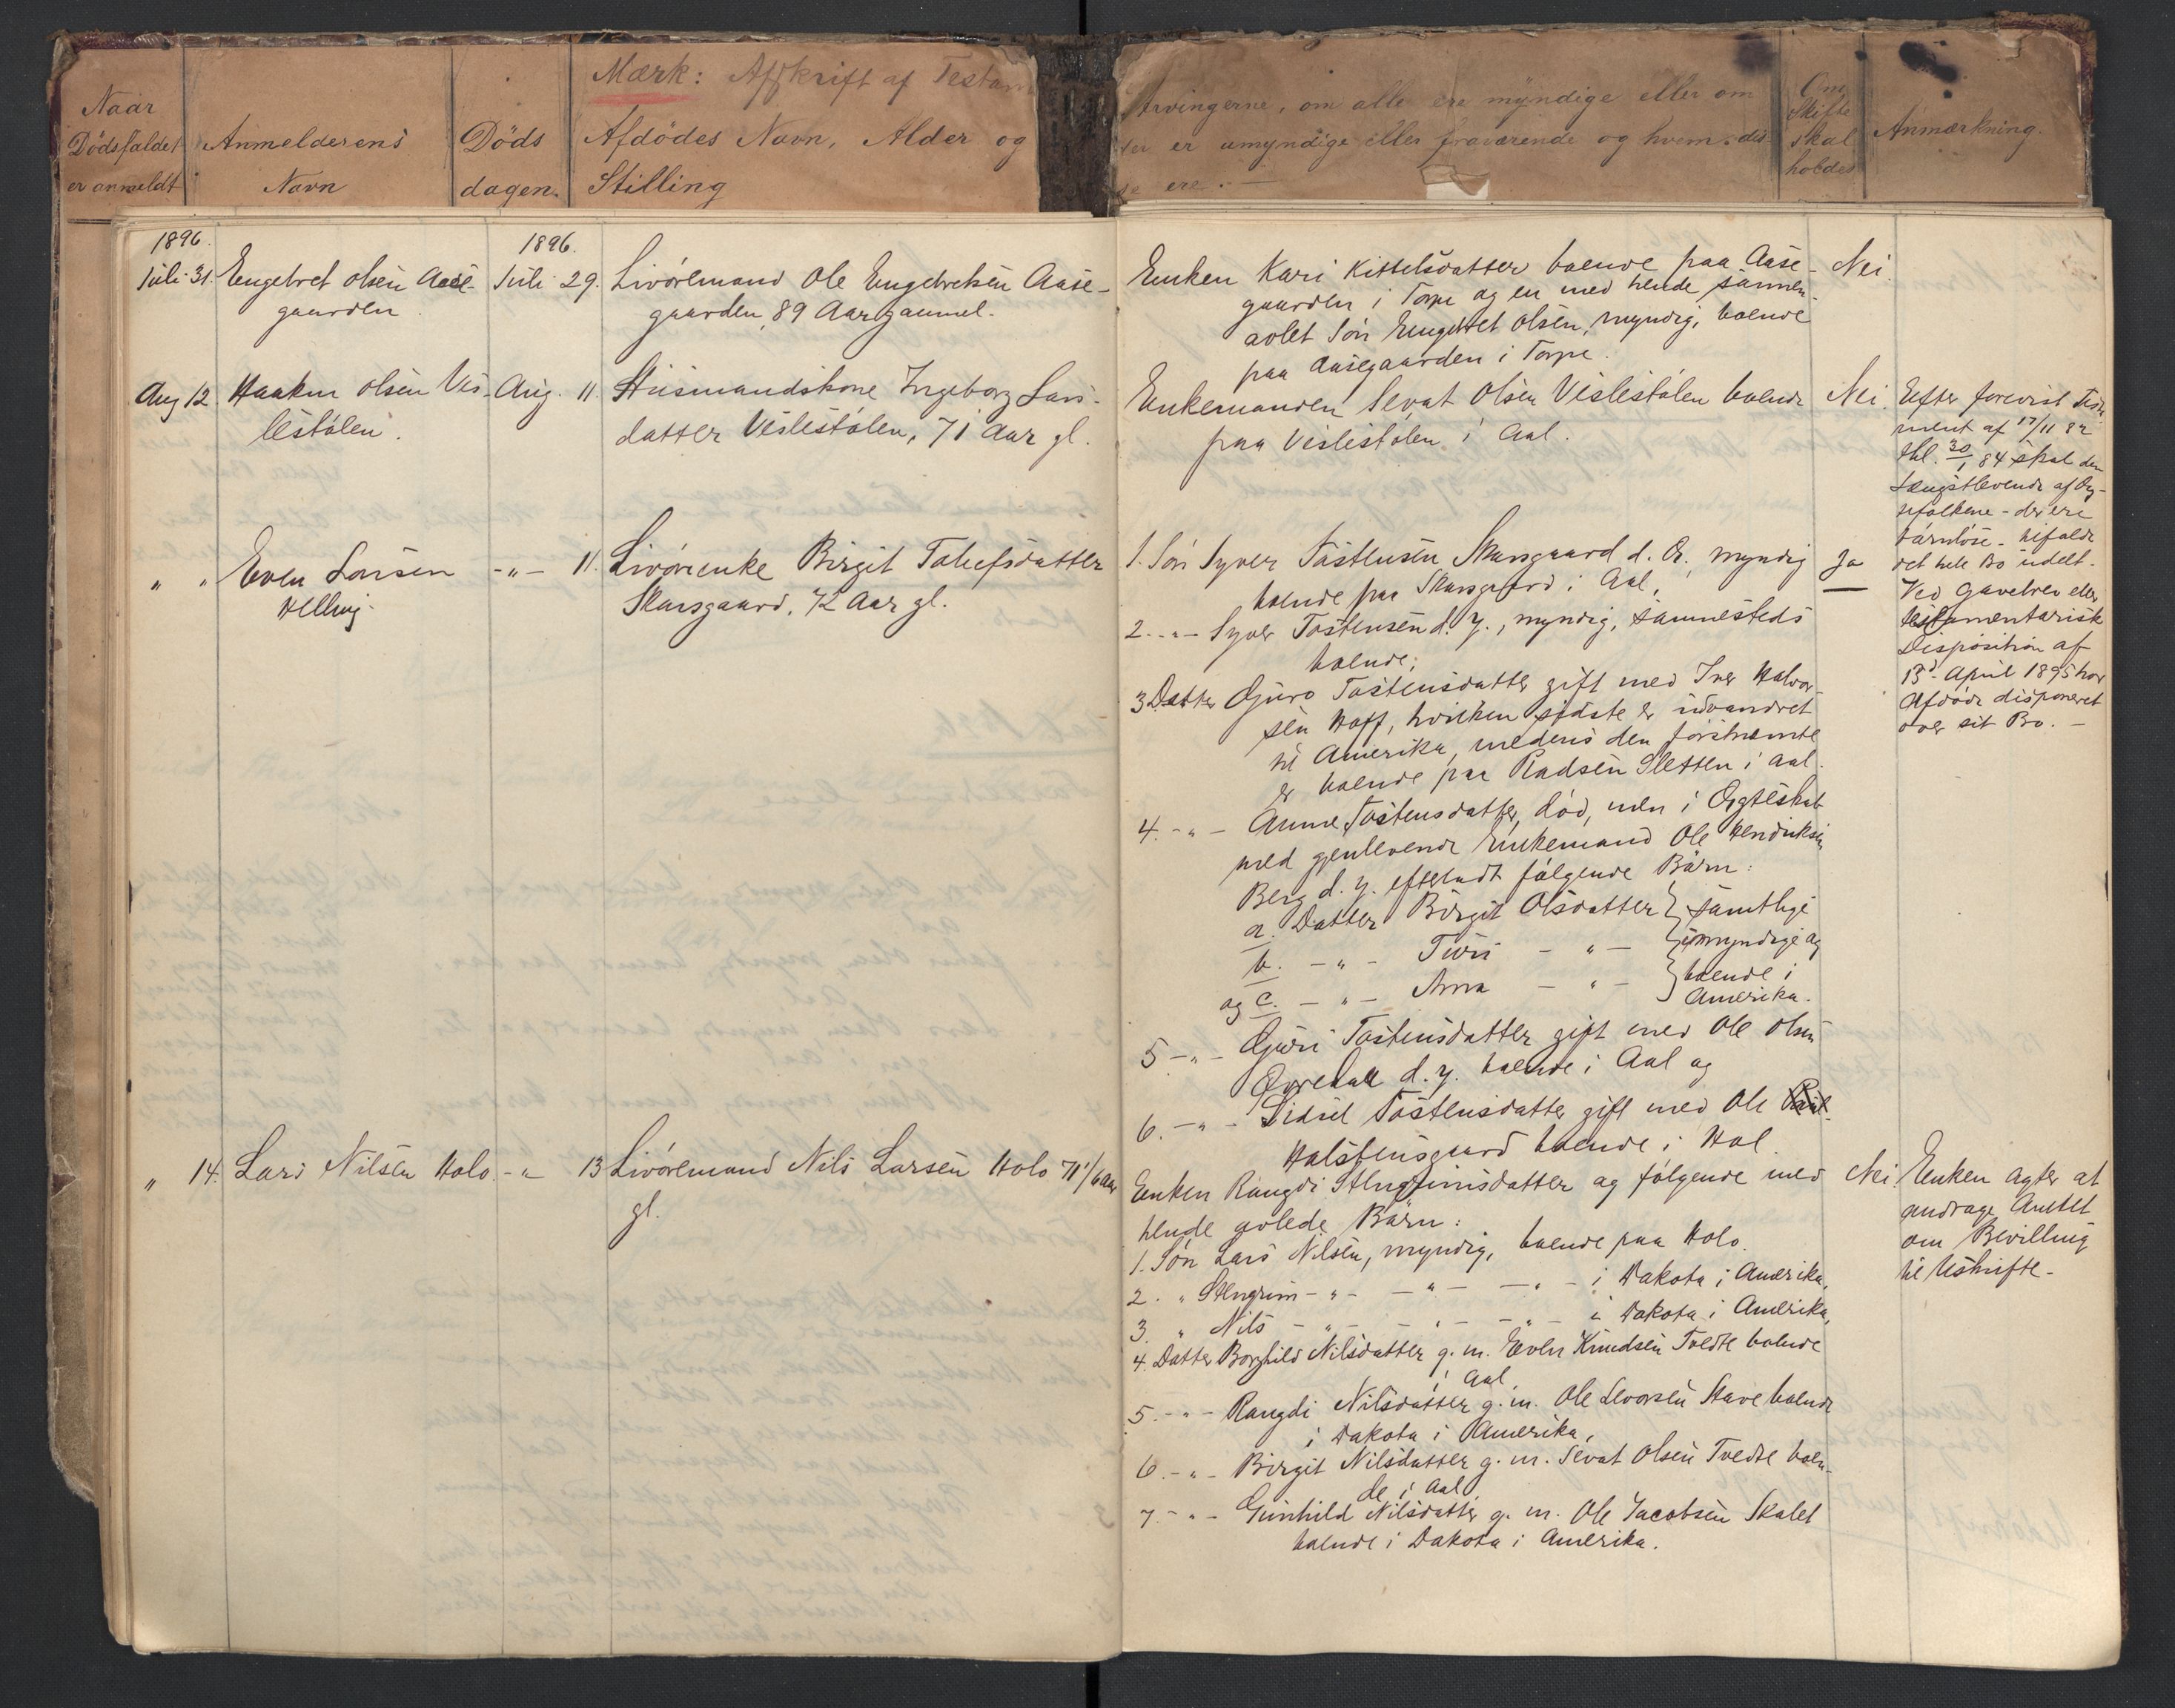 Naar
Dödsfaldet
er anmeldt
Anmelderens
Navn
Döds
dagen.
Mærk: Afskrift af Testam
Afdödes Navn, Alder og
Stilling
Arvingerne, om alle ere myndige eller om
er umyndige eller fraværende og hvem dis-
se ere. —
Om
Skifte
skal
holdes
Anmærkning.
1896.
Juli 31.
Engebret Olsen Aase-
gaarden.
1896.
Juli 29.
Livöremand Ole Engebretsen Aase-
gaarden, 89 Aar gammel.
Enken Kari Kittelsdatter boende paa Aase-
gaarden i Torpe og en med hende sammen-
avlet Sön Engebret Olsen, myndig, boende
paa Aasegaarden i Torpe.
Nei.
Aug 12
Haaken Olsen Vis-
lestölen.
Aug. 11.
Husmandskone Ingeborg Lars-
datter Vislestölen, 71 Aar gl.
Enkemanden Sevat Olsen Vislestölen boende
paa Vislestölen i Aal.
Nei.
Efter forevist Testa-
ment af 17/11 82
thl. 30/1 84 skal den
Længstlevende af Æg-
tefolkene - der ere
barnlöse - tilfalde
det hele Bo udelt.
" "
Even Larsen
Helling.
-"- 11.
Livörenke Birgit Tolefsdatter
Skarsgaard, 72 Aar gl.
1. Sön Syver Tostensen Skarsgaard d. Æ., myndig
boende paa Skarsgaard i Aal,
2. -"- Syver Tostensen d. y., myndig, sammesteds
boende;
3 Datter Gjuro Tostensdatter gift med Iver Halvor-
sen Hoff, hvilken sidste er udvandret
til Amerika, medens den förstnævnte
er boende paa Sletten i Aal.
4. -"- Anne Tostensdatter, död, men i Ægteskab
med gjenlevende Enkemand Ole Hendriksen
Berg d. y. efterladt fölgende Börn:
a. Datter Birgit Olsdatter } samtlige
b. -"- Turi -"- } umyndige og
og c. -"- Anna -"- } boende i
Amerika.
5 -"- Gjuri Tostensdatter gift med Ole Olsen
d. y. boende i Aal og
6. -"- Sidsel Tostensdatter gift med Ole
Halstensgaard boende i Hol.
Ja
Ved Gavebrev eller
testamentarisk
Disposition af
13d April 1895 har
Afdöde disponeret
over sit Bo. —
" 14.
Lars Nilsen Holo.
-" 13
Livöremand Nils Larsen Holo 71 1/6 Aar
gl.
Enken Rangdi Stengrimsdatter og fölgende med
hende avlede Börn:
1. Sön Lars Nilsen, myndig, boende paa Holo.
2. " Stengrim -"- -"- -"- i Dakota i Amerika,
3. " Nils -"- -"- -"- i Dakota i Amerika,
4. Datter Borghild Nilsdatter g. m. Even Knudsen Tvedte boende
i Aal,
5. -"- Rangdi Nilsdatter g. m. Ole Levorsen Stave boende
i Dakota i Amerika,
6. -"- Birgit Nilsdatter g. m. Sevat Olsen Tvedte boen-
de i Aal
7. -"- Gunhild Nilsdatter g. m. Ole Jacobsen Skalet
boende i Dakota i Amerika.
Nei.
Enken agter at
andrage Amtet
om Bevilling
til Uskifte.